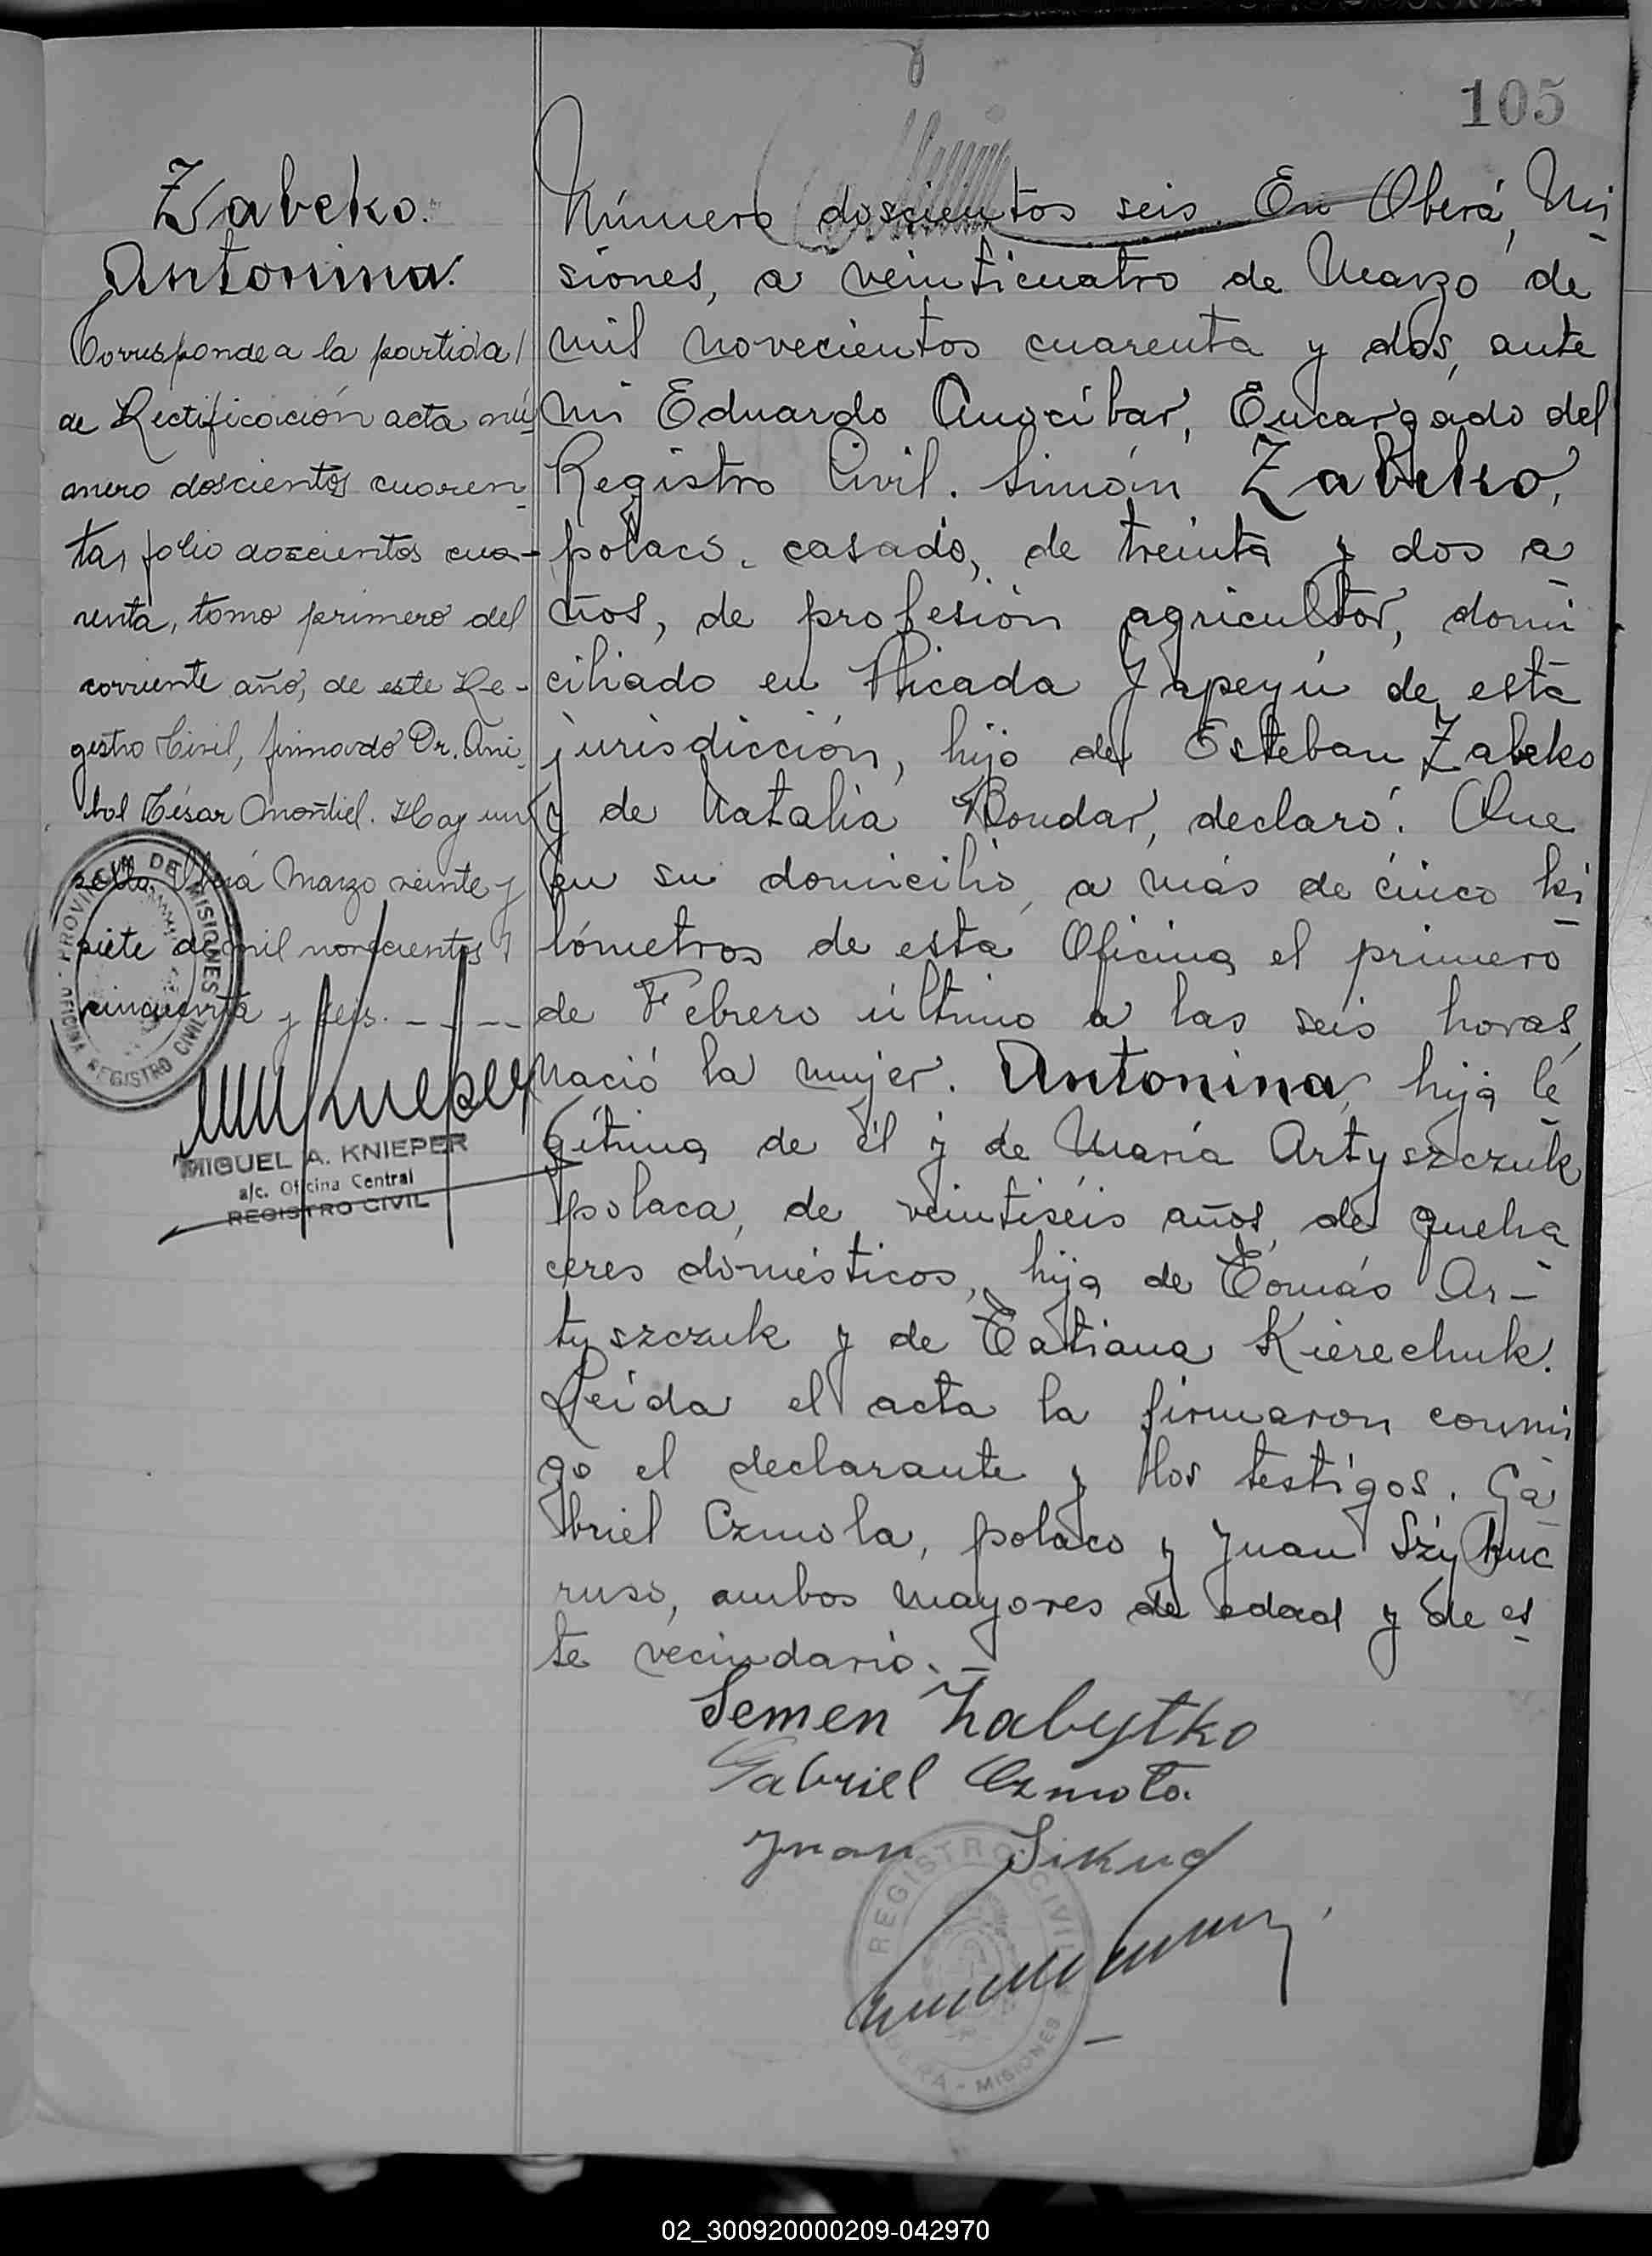 105
Zabeko.
Antonina.
Corresponde a la partida
de Rectificación acta nú-
mero doscientos cuaren-
ta, folio doscientos cua-
renta, tomo primero del
corriente año, de este Re-
gistro Civil, firmado Dr. Aní-
bal César Montiel. Hay un
sello. Oberá Marzo veinte y
siete de mil novecientos
cincuenta y seis. - - - -
PROVINCIA DE MISIONES
OFICINA REGISTRO CIVIL
MIGUEL A. KNIEPER
a/c. Oficina Central
REGISTRO CIVIL
Número doscientos seis. En Oberá, Mi
siones, a veinticuatro de Marzo de
mil novecientos cuarenta y dos, ante
mi Eduardo Anocíbar, Encargado del
Registro Civil. Simón Zabeko,
polaco, casado, de treinta y dos a
ños, de profesión agricultor, domi
ciliado en Picada Yapeyú de esta
jurisdicción, hijo de Esteban Zabeko
y de Natalia Bondar, declaró: Que
en su domicilio, a más de cinco ki
lómetros de esta Oficina el primero
de Febrero último a las seis horas,
nació la mujer. Antonina, hija le
gítima de él y de María Artyszczuk
polaca, de veintiséis años, de queha
ceres domésticos, hija de Tomás Ar-
tyszczuk y de Tatiana Kierechuk.
Leída el acta la firmaron conmi
go el declarante y los testigos. Ga
briel Czmola, polaco y Juan Szykuc
ruso, ambos mayores de edad y de es
te vecindario. -
Semen Zabytko
Gabriel Czmoła.
Juan Sikuc
REGISTRO CIVIL
OBERÁ - MISIONES
02_300920000209-042970